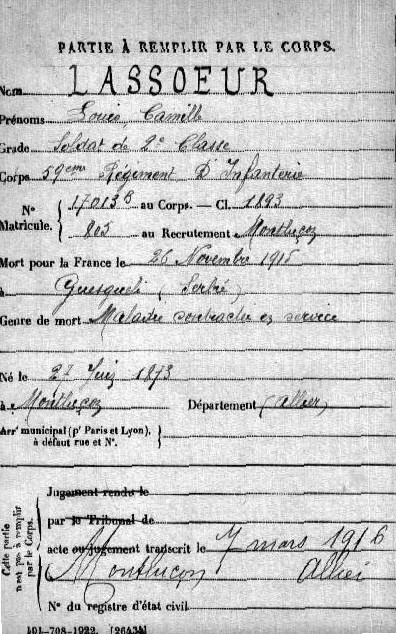 PARTIE À REMPLIR PAR LE CORPS.
Nom LASSOEUR
Prénoms Louis, Camille
Grade Soldat de 2e Classe
Corps 59eme Régiment D'Infanterie
N° Matricule. 17013B au Corps. — Cl. 1893
805 au Recrutement Montluçon
Mort pour la France le 26 Novembre 1915
à (Serbie)
Genre de mort Maladie contractée en service
Né le 27 Juin 1873
à Montluçon Département (Allier)
Arrt municipal (pr Paris et Lyon),
à défaut rue et N°.
Cette partie
n'est pas à remplir
par le Corps.
Jugement rendu le
par le Tribunal de
acte ou jugement transcrit le 7 mars 1916
Montluçon Allier
N° du registre d'état civil
101-708-1922. [26434]